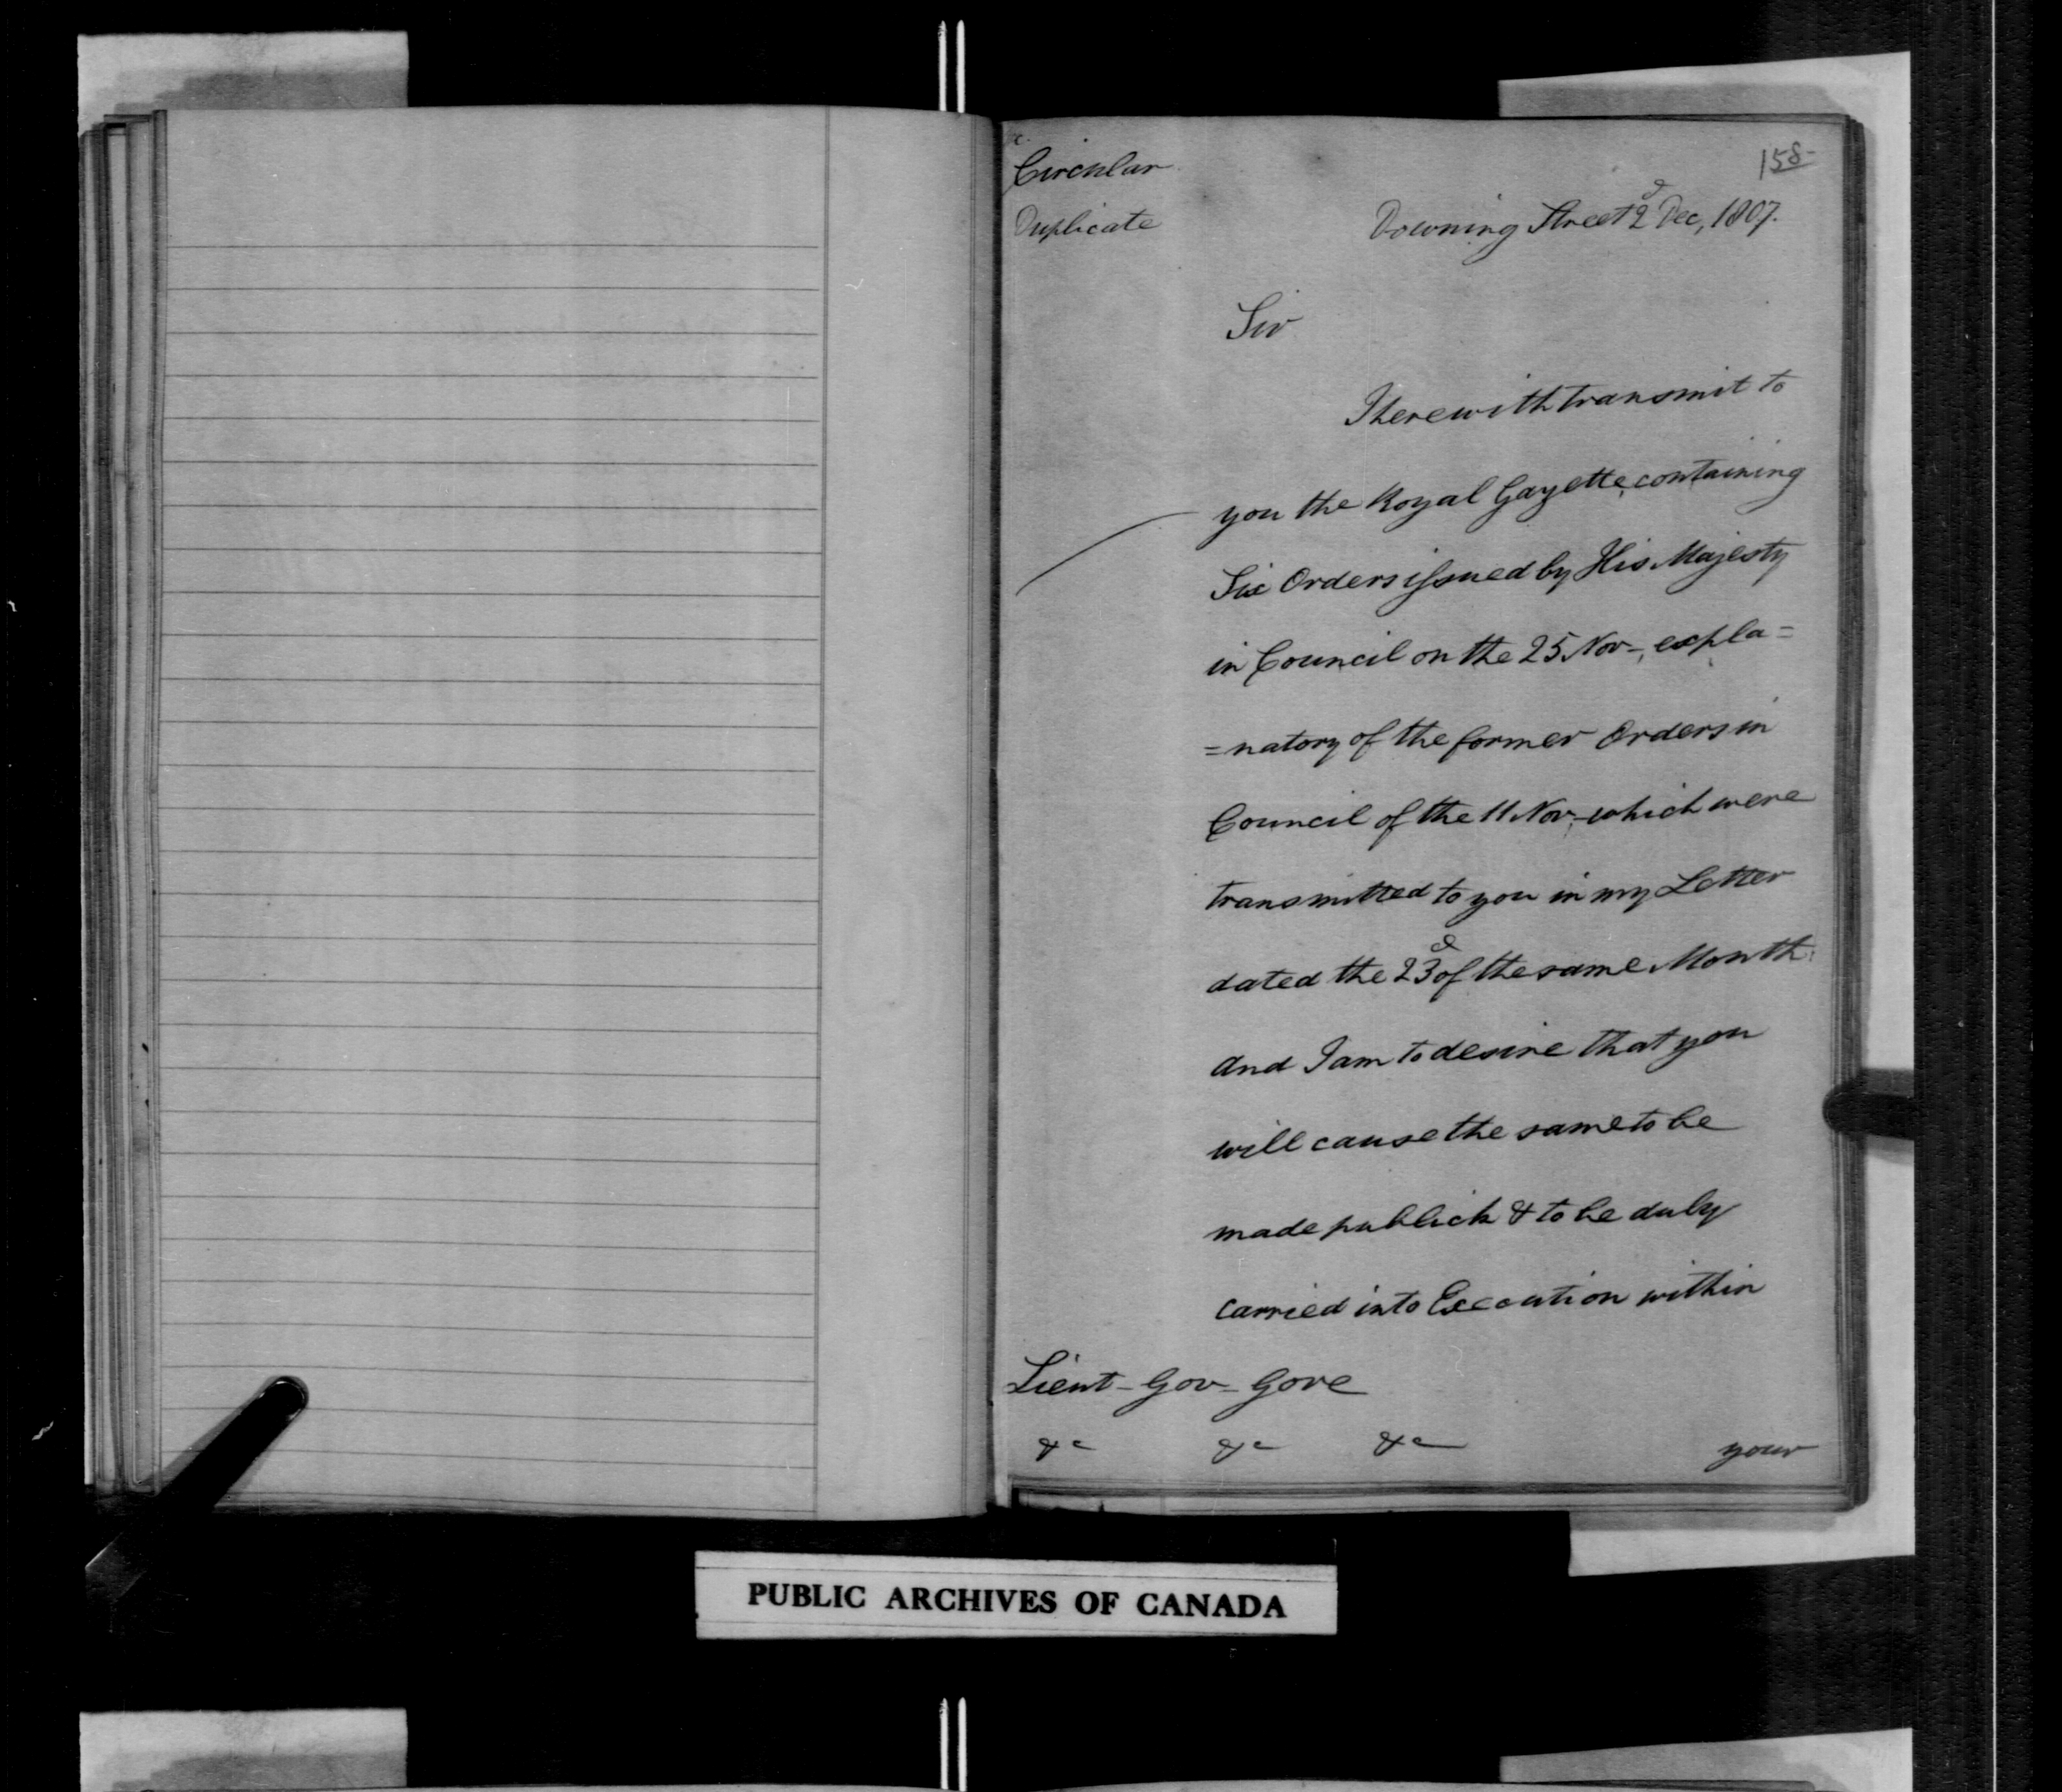 Circular
158
Duplicate
Downing Street 2d Dec, 1807.
Sir
I herewith transmit to
you the Royal Gazette, containing
Six Orders issued by His Majesty
in Council on the 25 Nov-, expla=
=natory of the former Orders in
Council of the 11 Nov-, which were
transmitted to you in my Letter
dated the 23d of the same Month.
And I am to desire that you
will cause the same to be
made publick & to be duly
carried into Execution within
Lieut- Gov- Gore
&c &c &c
your
PUBLIC ARCHIVES OF CANADA